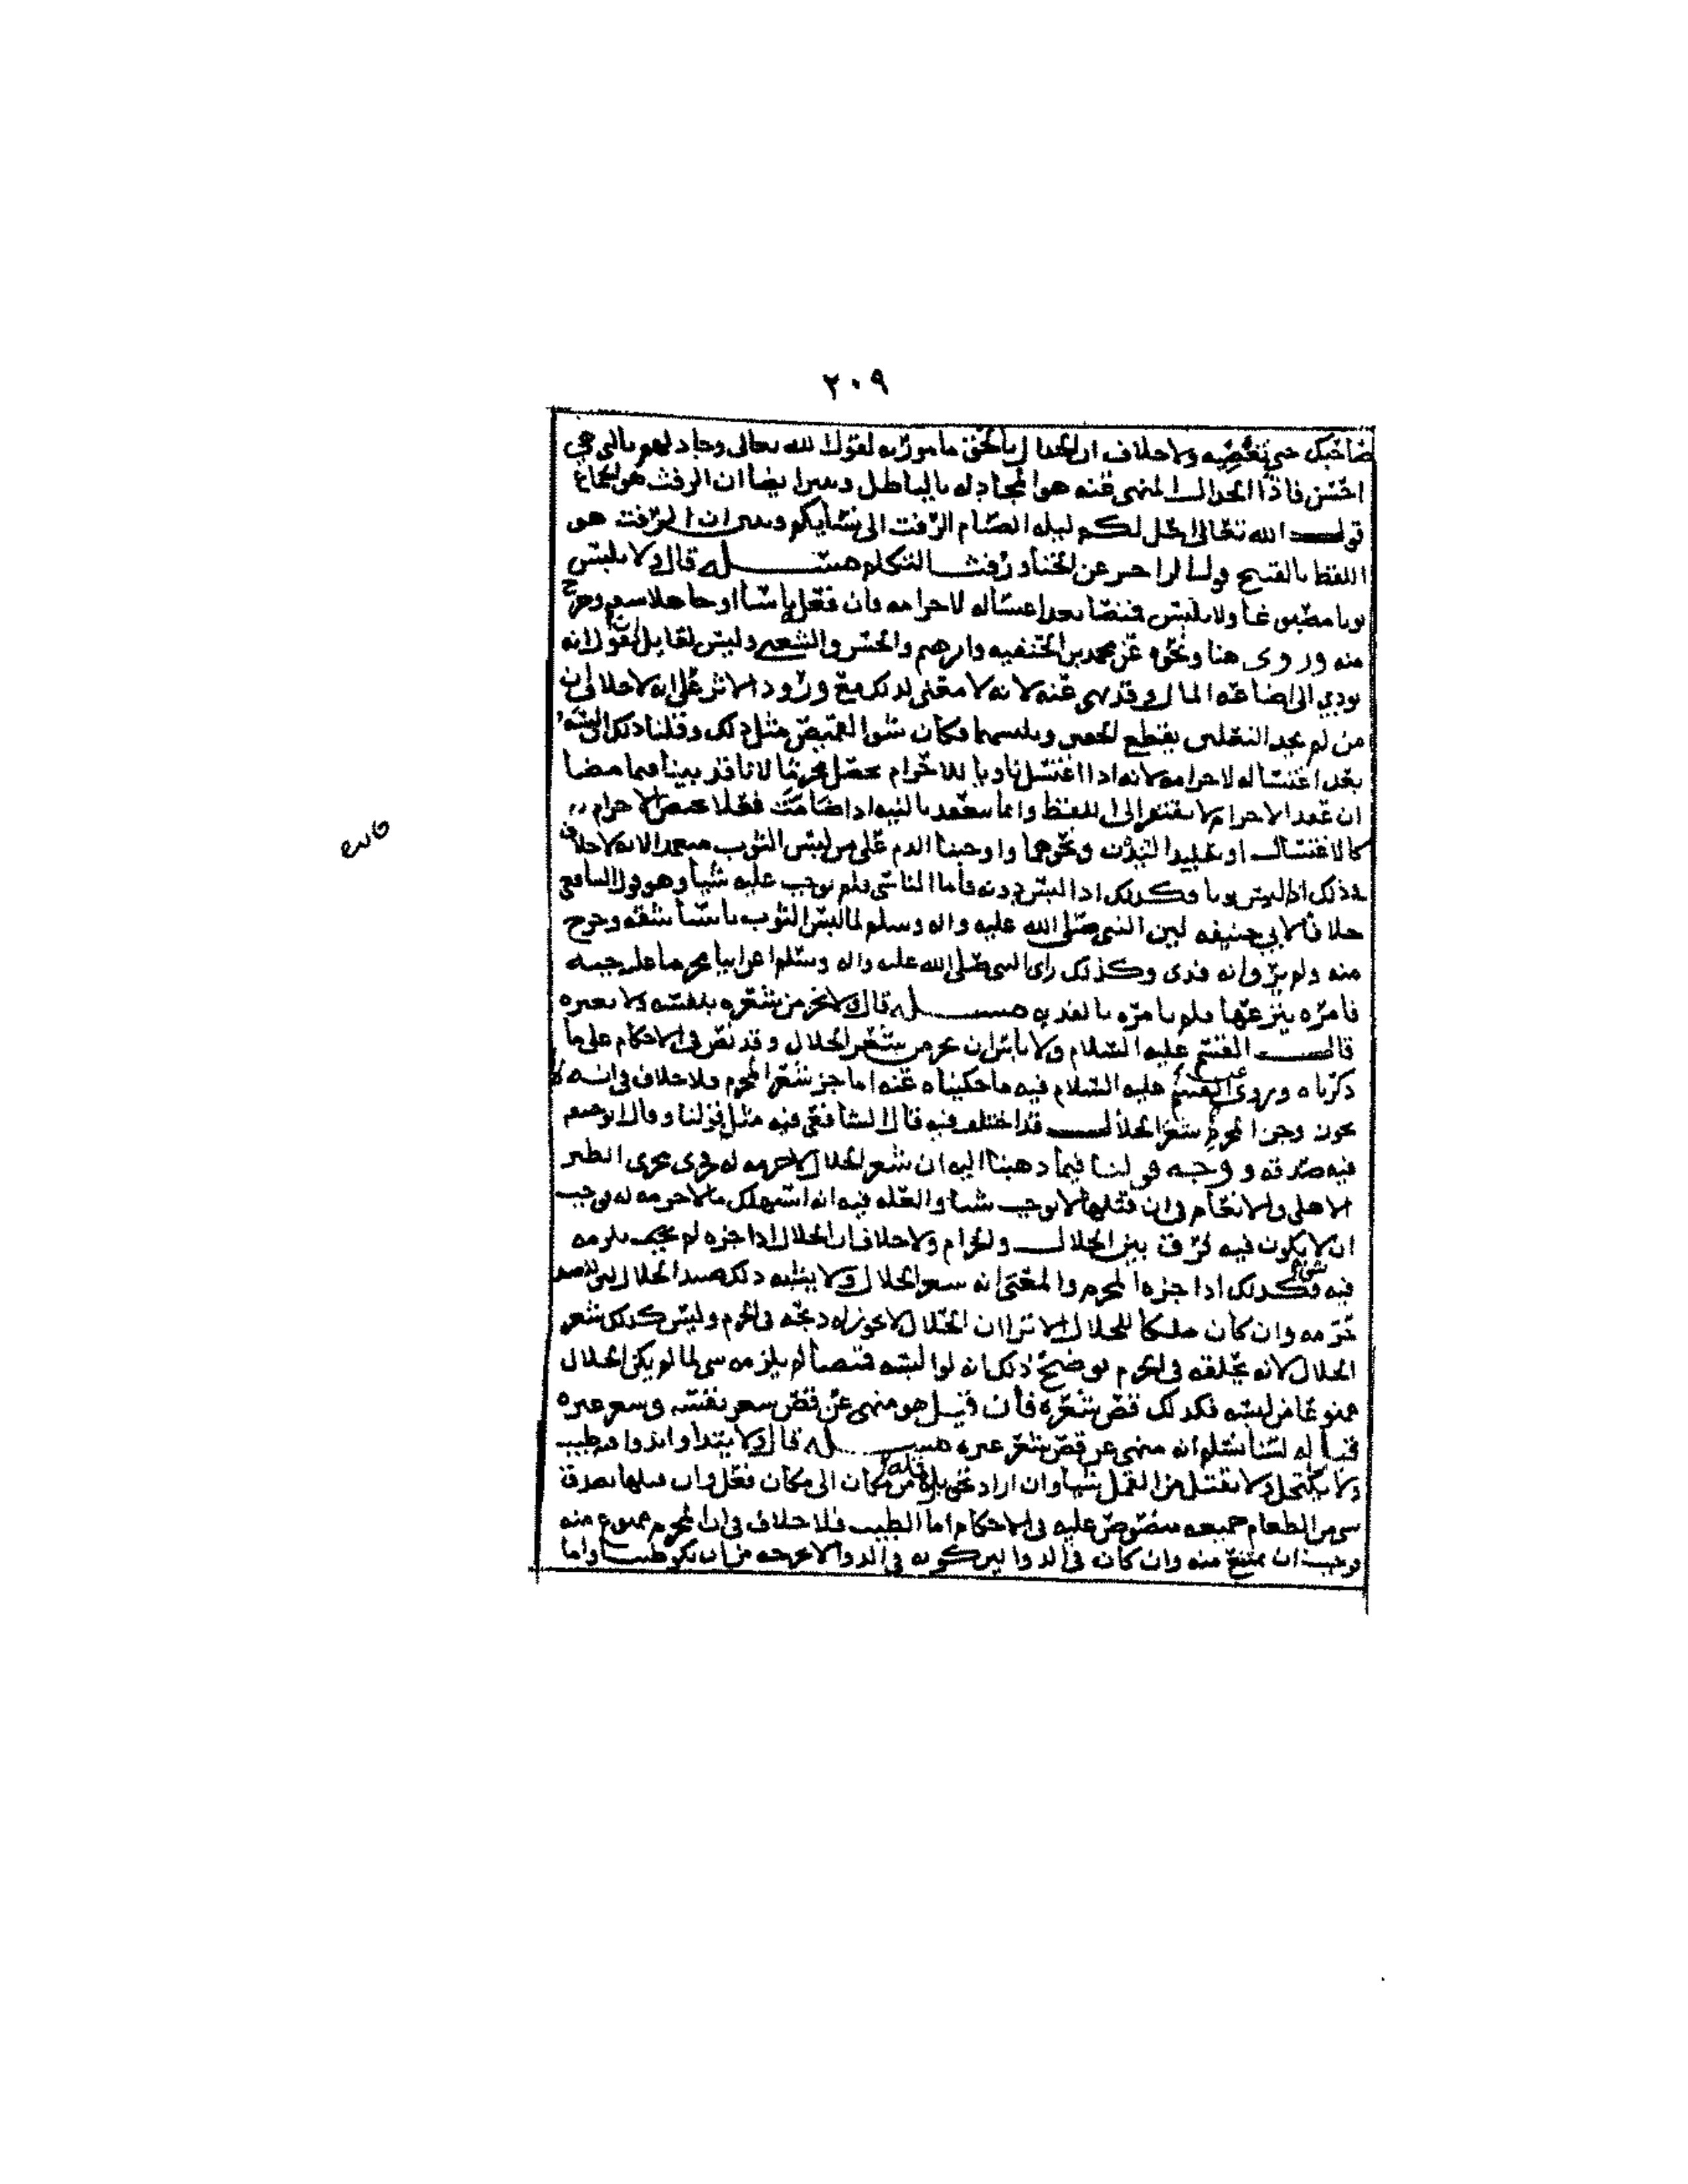 ٢٠٩
صاحبك حتى تغضبه ولا خلاف ان الجدال بالحق مامور به لقول الله تعالى وجادلهم بالتي هي
احسن فاذا الجدال المنهي عنه هو المجادله بالباطل وتبين ايضا ان الرفث هو الجماع
قول الله تعالى احل لكم ليله الصيام الرفث الى نسايكم وتبين ان الرفث هو
اللفظ بالقبيح قول الراجز عن الخنا ورفث التكلم مسله قال ولا يلبس
ثوبا مصبوغا ولا يلبس قميصا بعد اغتساله لاحرامه فان فعل ناسيا او جاهلا شقه وخرج
منه وروى هذا ونحوه عن محمد بن الحنفيه وابرهيم والحسن والشعبي وليس لقايل ان يقول انه
يودي الى اضاعه المال وقد نهى عنه لانه لا معنى لذلك مع ورود الاثر على انه لا خلاف ان
من لم يجد النعلين يقطع الخفين ويلبسهما فكان شق القميص مثل ذلك وقلنا ذلك اذا لبسه
بعد اغتساله لاحرامه لانه اذا اغتسل ناويا للاحرام حصل محرما لانا قد بينا فيما مضا
ان عقد الاحرام لا يفتقر الى اللفظ وانما ينعقد بالنيه اذا ضامت فعلا الاحرام
كالاغتسال او تقليد البدن ونحوهما واوجبنا الدم على من لبس الثوب متعمدا لانه لا خلاف
في ذلك اذا لبس يوما وكذلك اذا لبس دونه فاما الناسي فلم نوجب عليه شيا وهو قول الشافعي
خلافا لابي حنيفه لان النبي صلى الله عليه واله وسلم لما لبس الثوب ناسيا شقه وخرج
منه ولم يرو انه فدى وكذلك راى النبي صلى الله عليه واله وسلم اعرابيا محرما عليه جبه
فامره بنزعها ولم يامره بالفديه مسله قال ولا يجز من شعره بنفسه ولا بغيره
قال القسم عليه السلام ولا باس ان يجز من شعر الحلال وقد نص في الاحكام على ما
ذكرناه وروى عن القسم عليه السلام فيه ما حكيناه عنه اما جز شعر المحرم فلا خلاف في انه لا
يجوز وجز المحرم شعر الحلال قد اختلف فيه قال الشافعي فيه مثل قولنا وقال ابو حنيفه
فيه صدقه ووجه قولنا فيما ذهبنا اليه ان شعر الحلال لا حرمه له فجرى مجرى الطير
الاهلي والانعام في ان قتلها لا يوجب شيا والعله فيه انه استهلك ما لا حرمه له فوجب
ان لا يكون فيه فرق بين الحلال والحرام ولا خلاف ان الحلال اذا جزه لم يجب يلزمه
شي
فيه فكذلك اذا جزه المحرم والمعنى انه شعر الحلال ولا يشبه ذلك صيد الحلال لان للصيد
حرمه وان كان ملكا للحلال الا ترا ان الحلال لا يجوز له ذبحه في الحرم وليس كذلك شعر
الحلال لانه يحلقه في الحرم توضيح ذلك انه لو البسه قميصا لم يلزمه شي لما لم يكن الحلال
ممنوعا من لبسه فكذلك قص شعره فان قيل هو منهي عن قص شعر نفسه وشعر غيره
قيل له لسنا نسلم انه منهي عن قص شعر غيره مسله قال ولا يتداوا بدوا فيه طيب
ولا يكتحل ولا يقتل من القمل شيا وان اراد تحويل قمله من مكان الى مكان فعل وان قتلها تصدق
بشي من الطعام جميعه منصوص عليه في الاحكام اما الطيب فلا خلاف في ان المحرم ممنوع منه
فوجب ان يمتنع منه وان كان في الدوا لان كونه في الدوا لا يخرجه من ان يكون طيبا واما